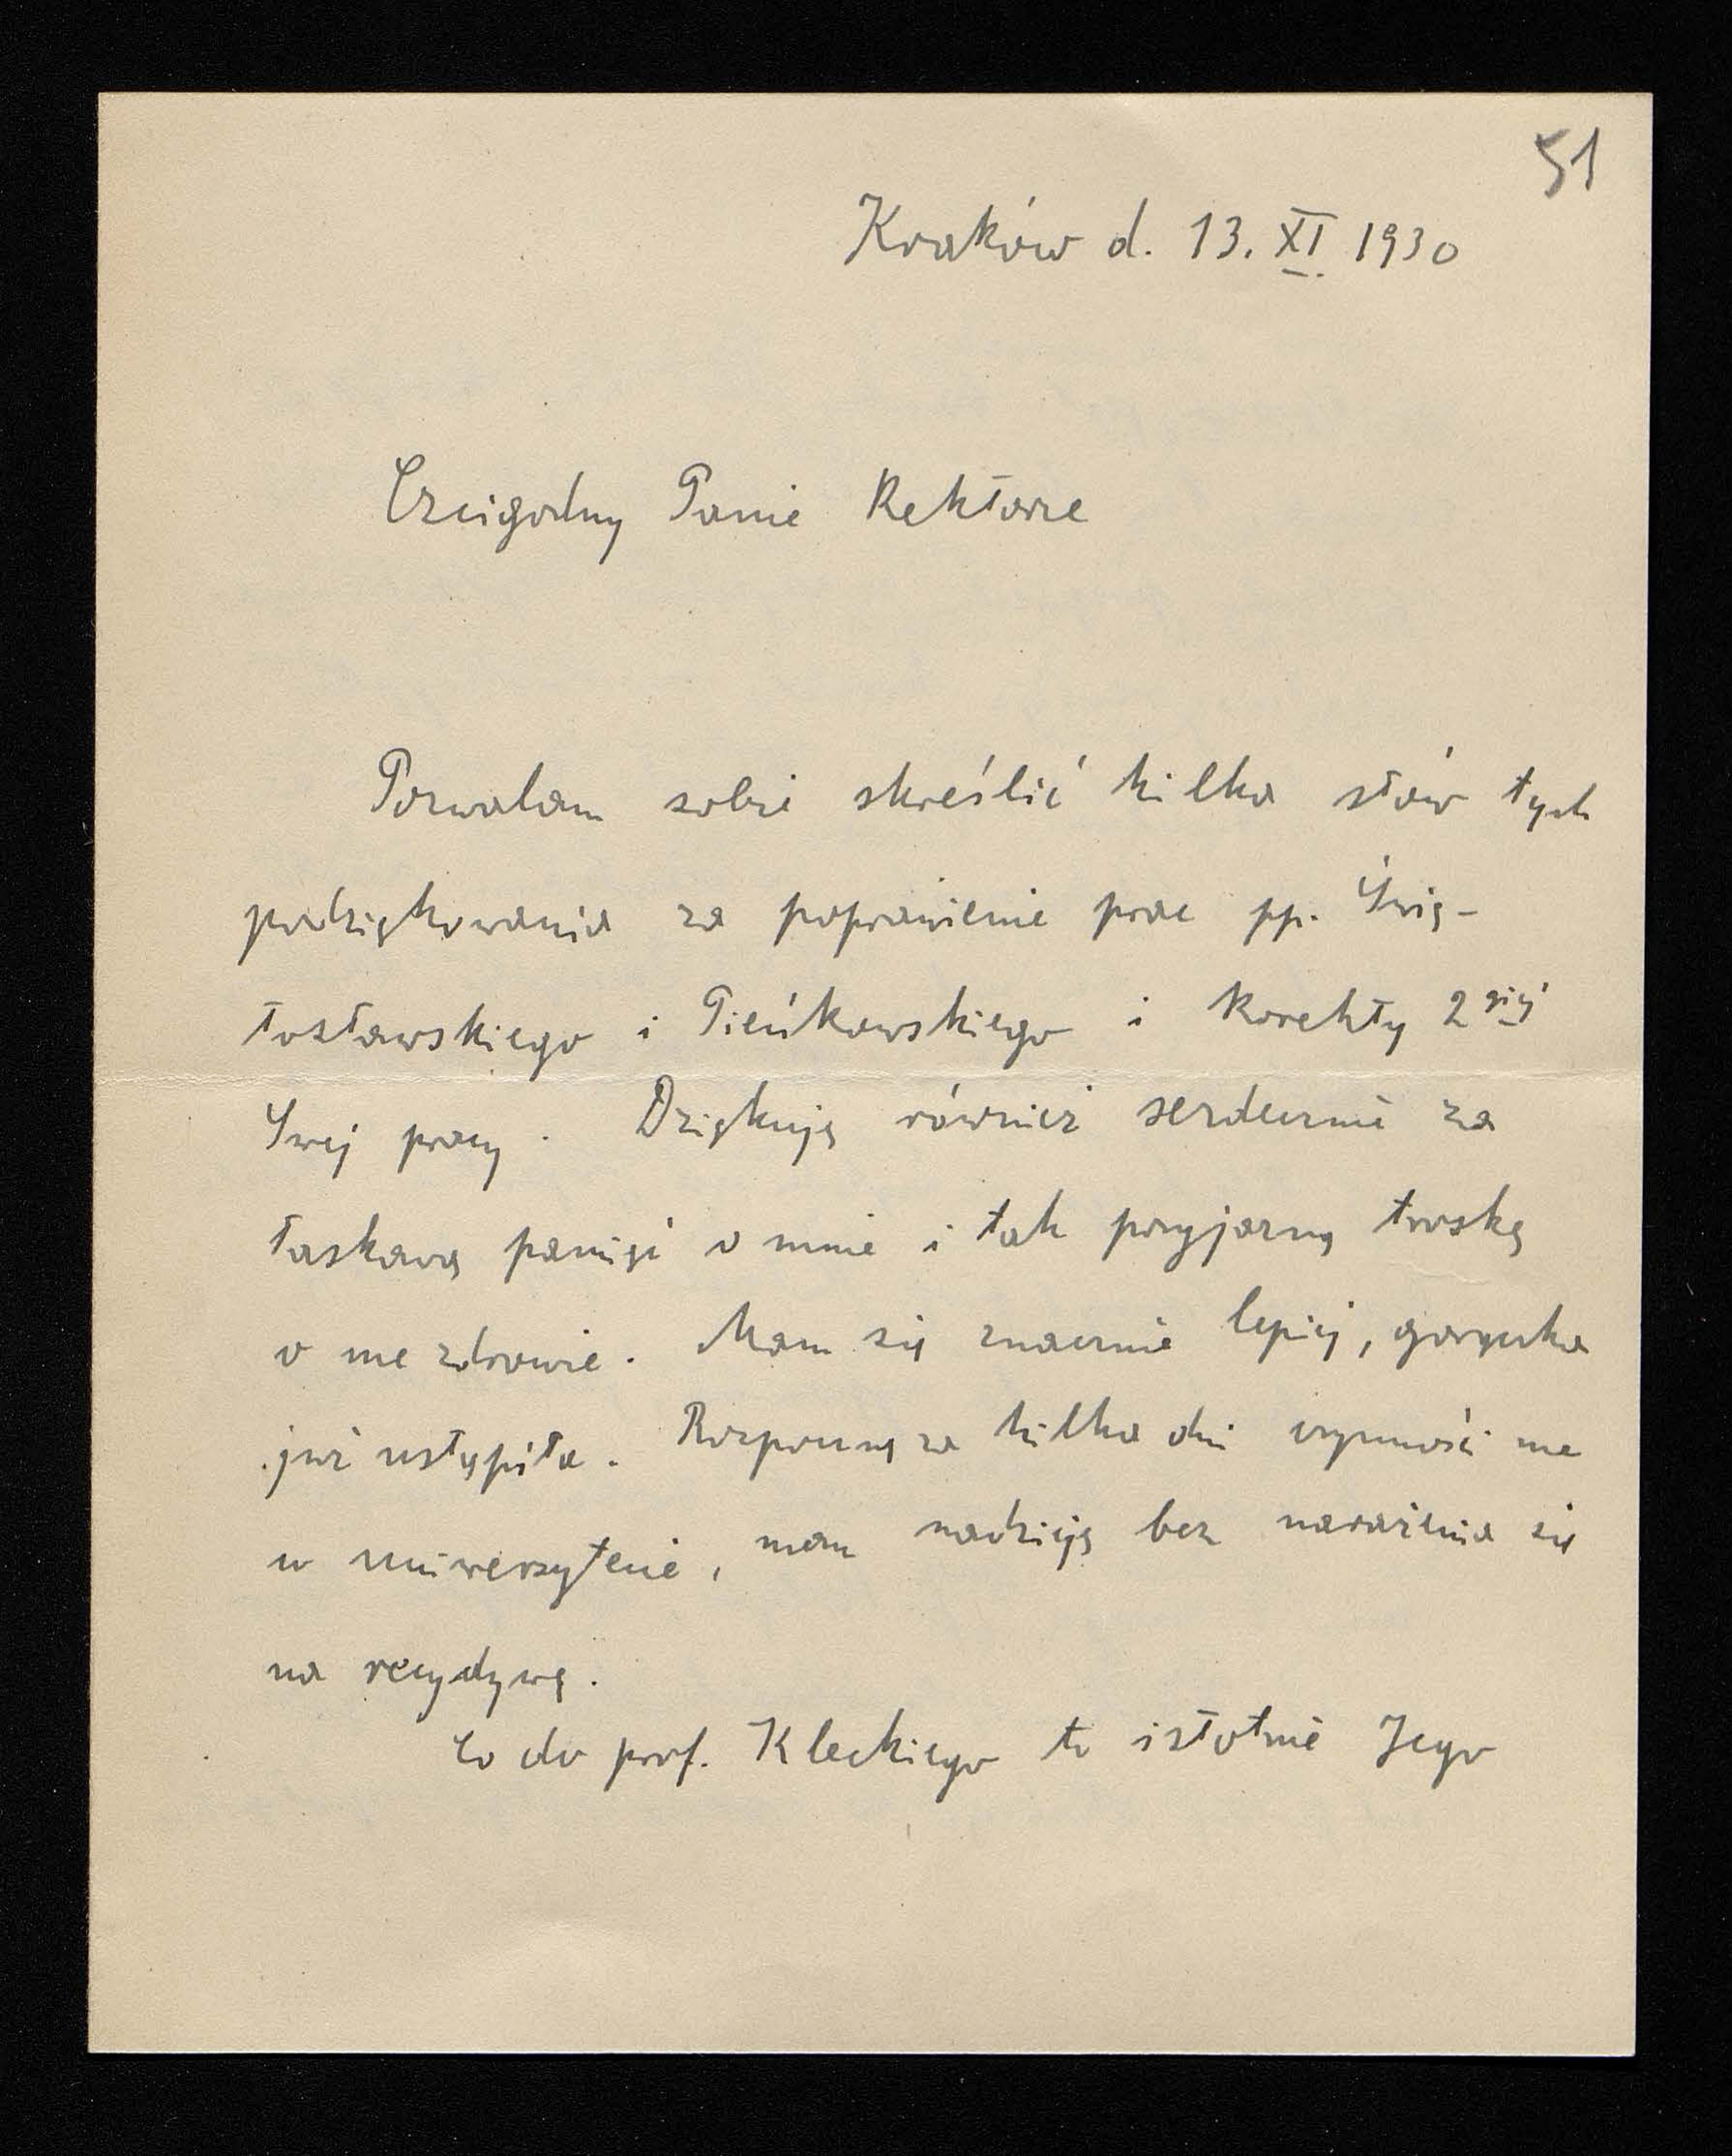 51
Kraków d. 13. XI. 1930
Czcigodny Panie Rektorze
Pozwalam sobie skreślić kilka słów tych
podziękowania za poprawienie prac pp. Świę-
tosławskiego i Pieńkowskiego i korekty 2giej
Swej pracy. Dziękuję również serdecznie za
łaskawą pamięć o mnie i tak przyjazną troskę
o me zdrowie. Mam się znacznie lepiej, gorączka
już ustąpiła. Rozpocznę za kilka dni czynności me
w uniwersytecie, mam nadzieję bez narażenia się
na recydywę.
Co do prof. Kleckiego to istotnie Jego